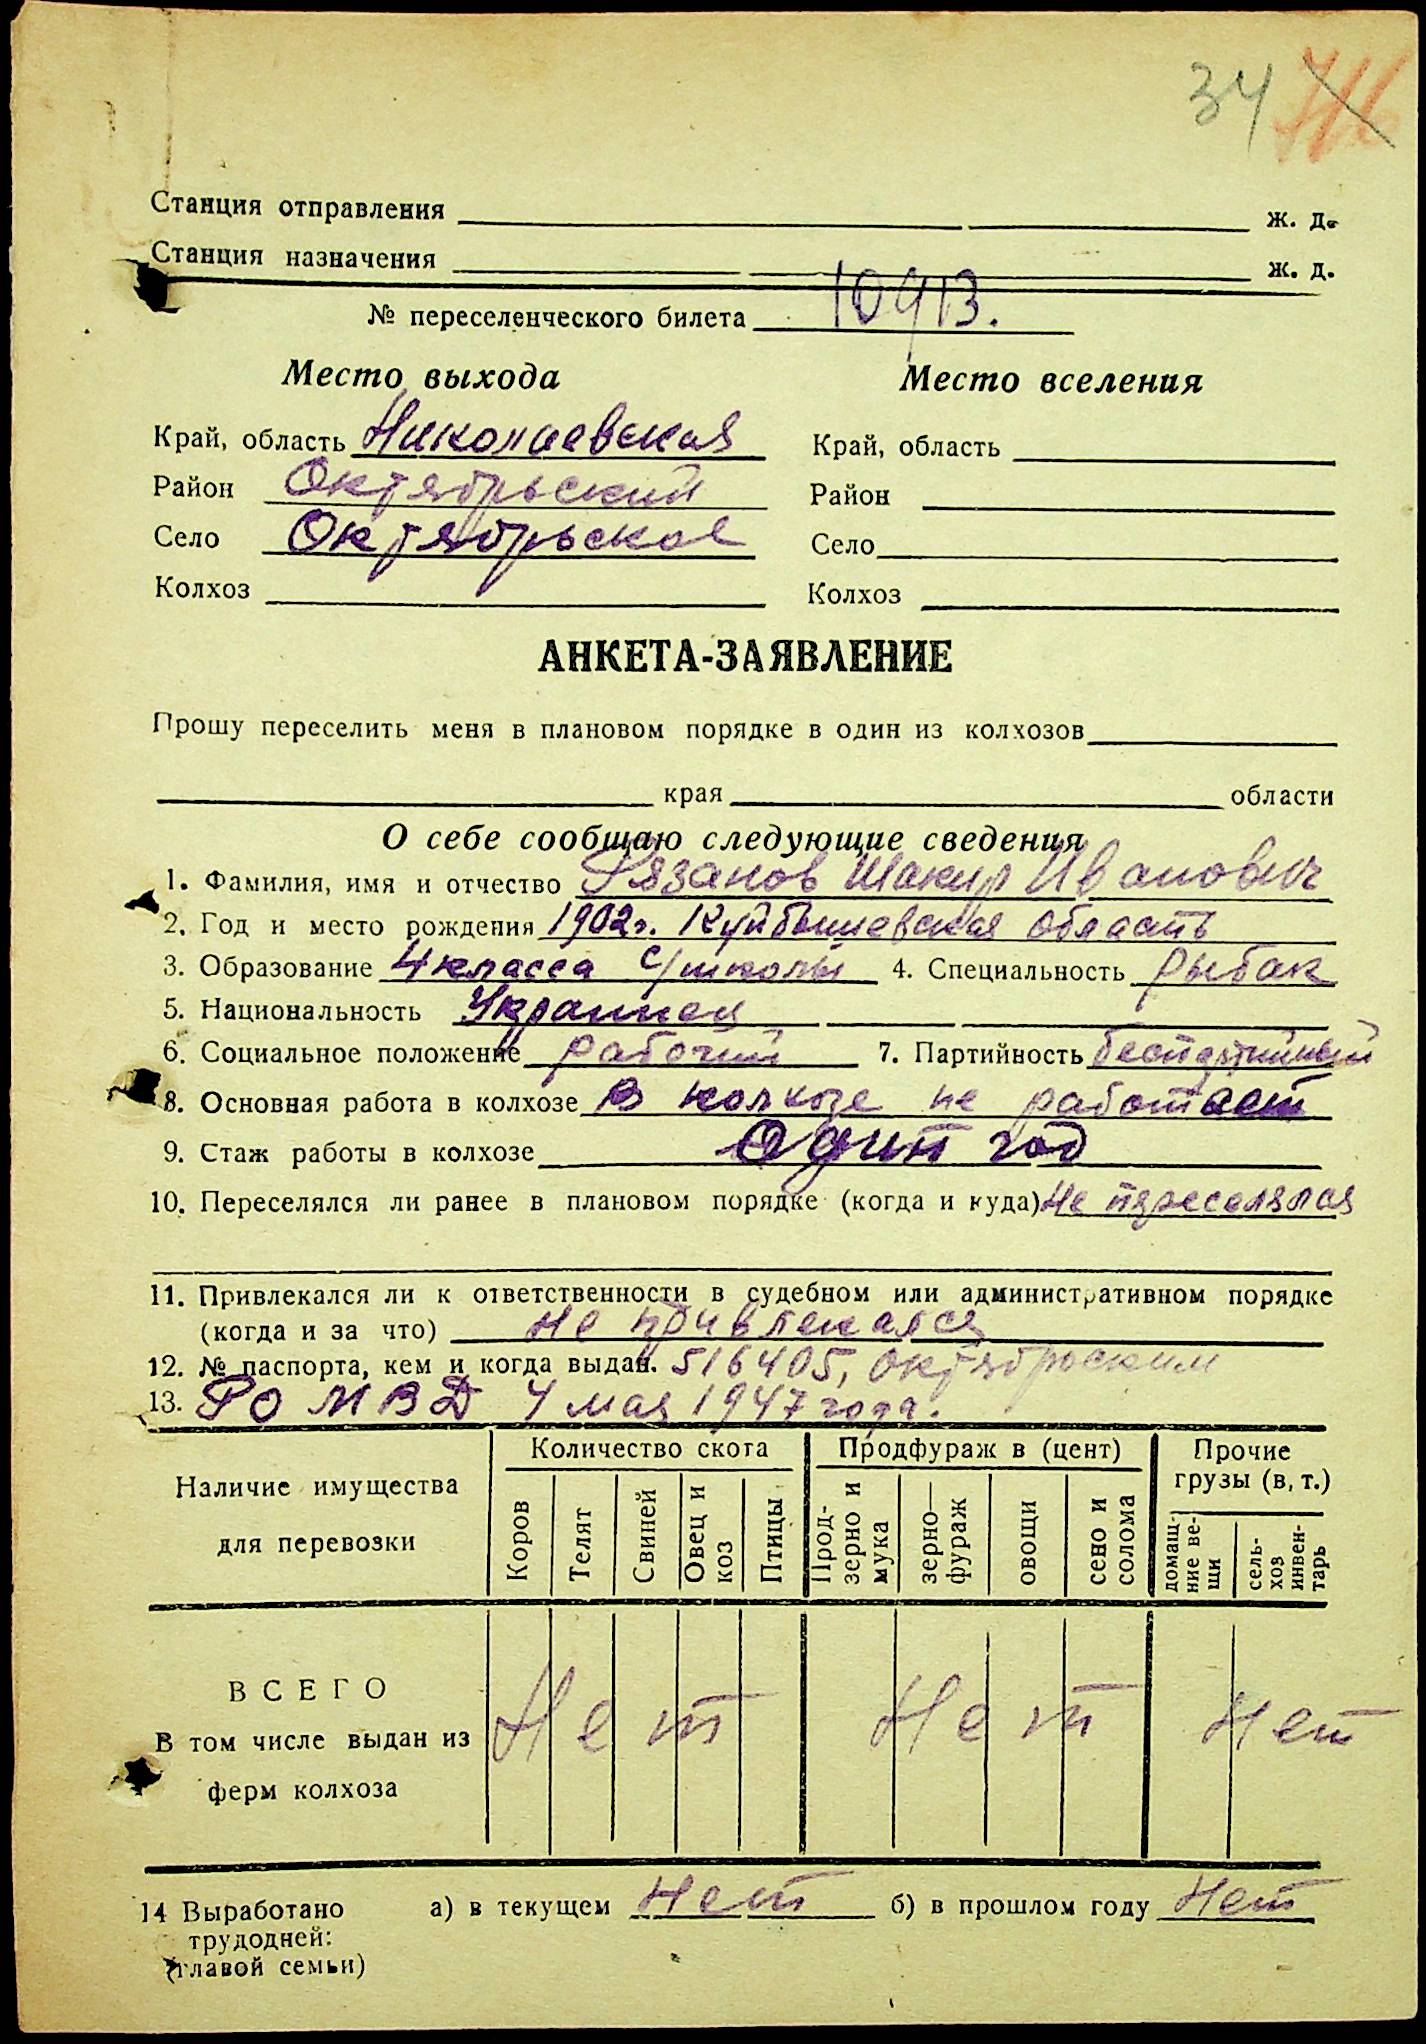 34 716
Станция отправления ж. д.
Станция назначения ж. д.
№ переселенческого билета 10913.
Место выхода Место вселения
Край, область Николаевская Край, область
Район Октябрьский Район
Село Октябрьское Село
Колхоз Колхоз
АНКЕТА-ЗАЯВЛЕНИЕ
Прошу переселить меня в плановом порядке в один из колхозов
края области
О себе сообщаю следующие сведения
1. Фамилия, имя и отчество Рязанов Шакир Иванович
2. Год и место рождения 1902г. Куйбышевская область
3. Образование 4 класса с/школы 4. Специальность рыбак
5. Национальность Украинец
6. Социальное положение рабочий 7. Партийность беспартийный
8. Основная работа в колхозе В колхозе не работает
9. Стаж работы в колхозе Один год
10. Переселялся ли ранее в плановом порядке (когда и куда) Не переселялся
11. Привлекался ли к ответственности в судебном или административном порядке
(когда и за что) не привлекался
12. № паспорта, кем и когда выдан. 516405, Октябрьским
13. РО МВД 4 мая 1947 года.
Наличие имущества для перевозки
Количество скота Продфураж в (цент) Прочие грузы (в, т.)
Коров Телят Свиней Овец и коз Птицы Прод-зерно и мука зерно—фураж овощи сено и солома домаш-ние ве-щи сель-хоз инвен-тарь
ВСЕГО
В том числе выдан из
ферм колхоза
Нет Нет Нет
14 Выработано а) в текущем Нет б) в прошлом году Нет
трудодней:
(главой семьи)